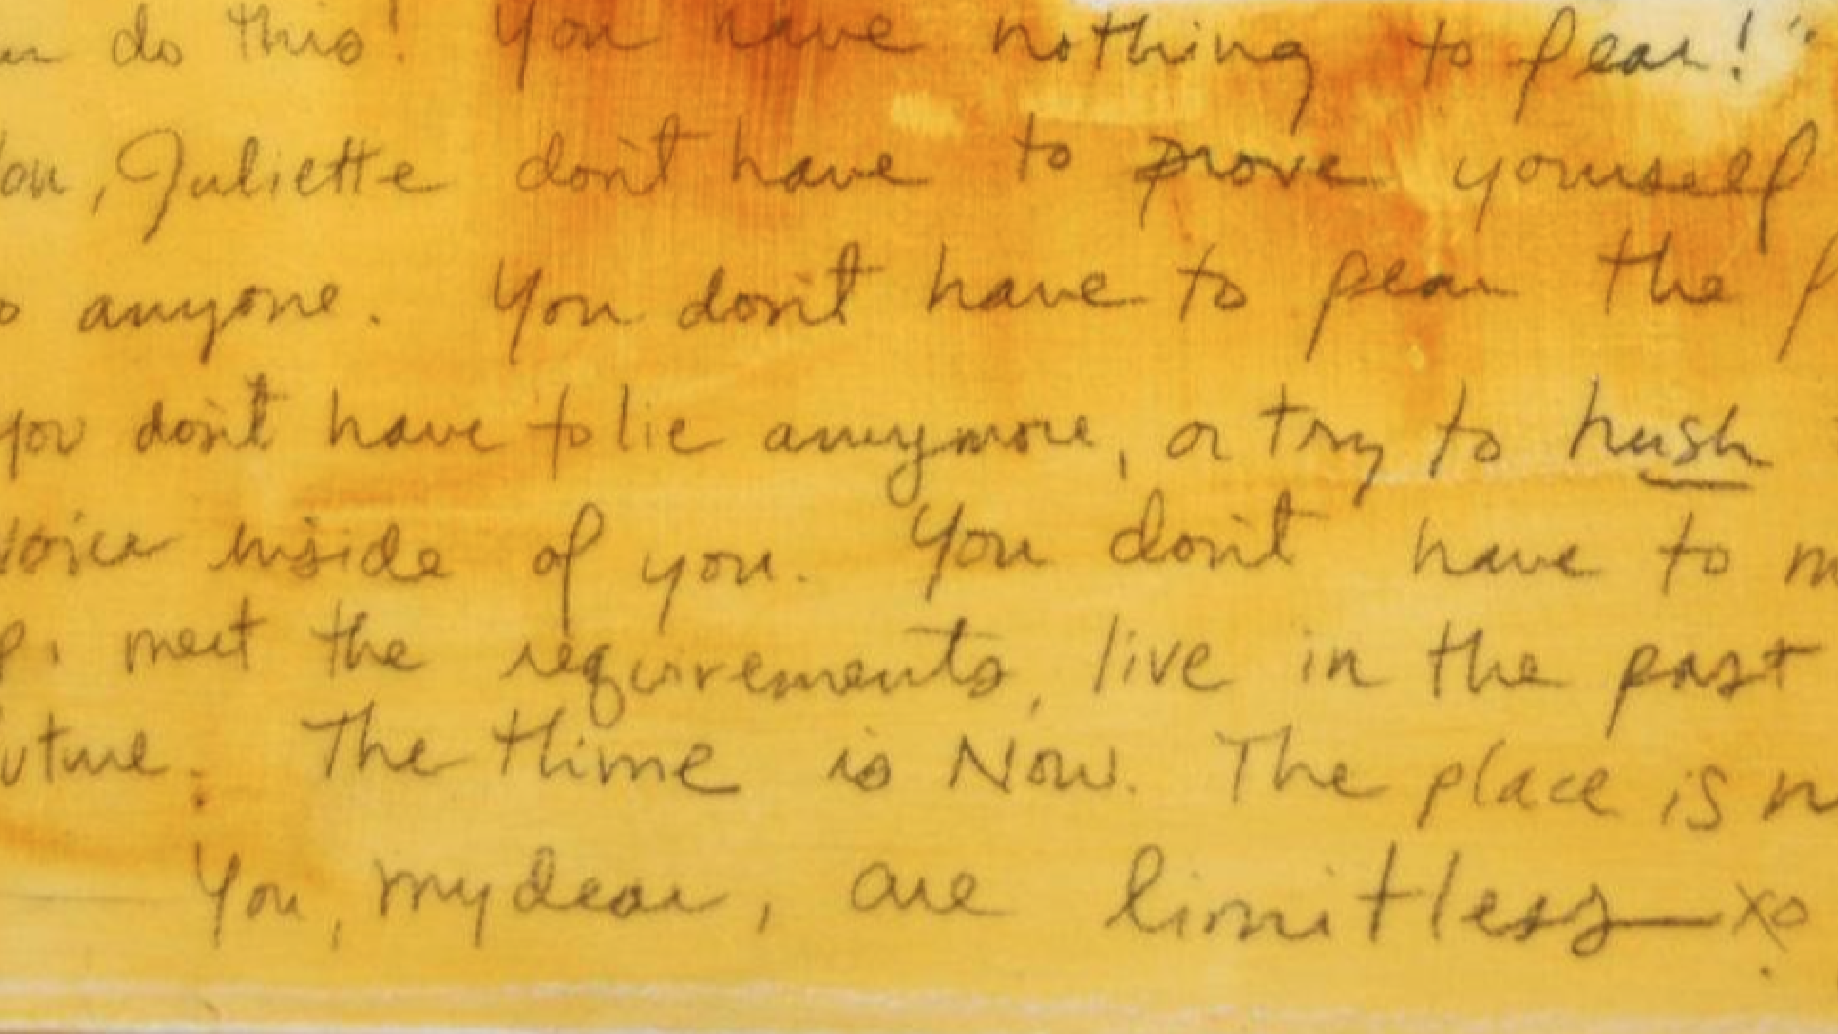 do this! You have nothing to fear!"
You, Juliette don't have to prove yourself
anyone. You don't have to fear the
you don't have to lie anymore, or try to hush
voice inside of you. You don't have to
p. meet the requirements, live in the past
uture. The thime is Now. The place is n
You, my dear, are limitless xo